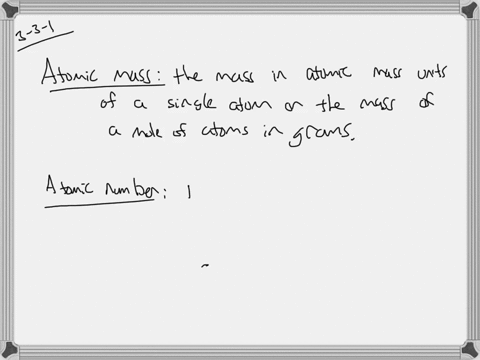 3-3-1
Atomic mass: the mass in atomic mass units
of a single atom or the mass of
a mole of atoms in grams.
Atomic number: